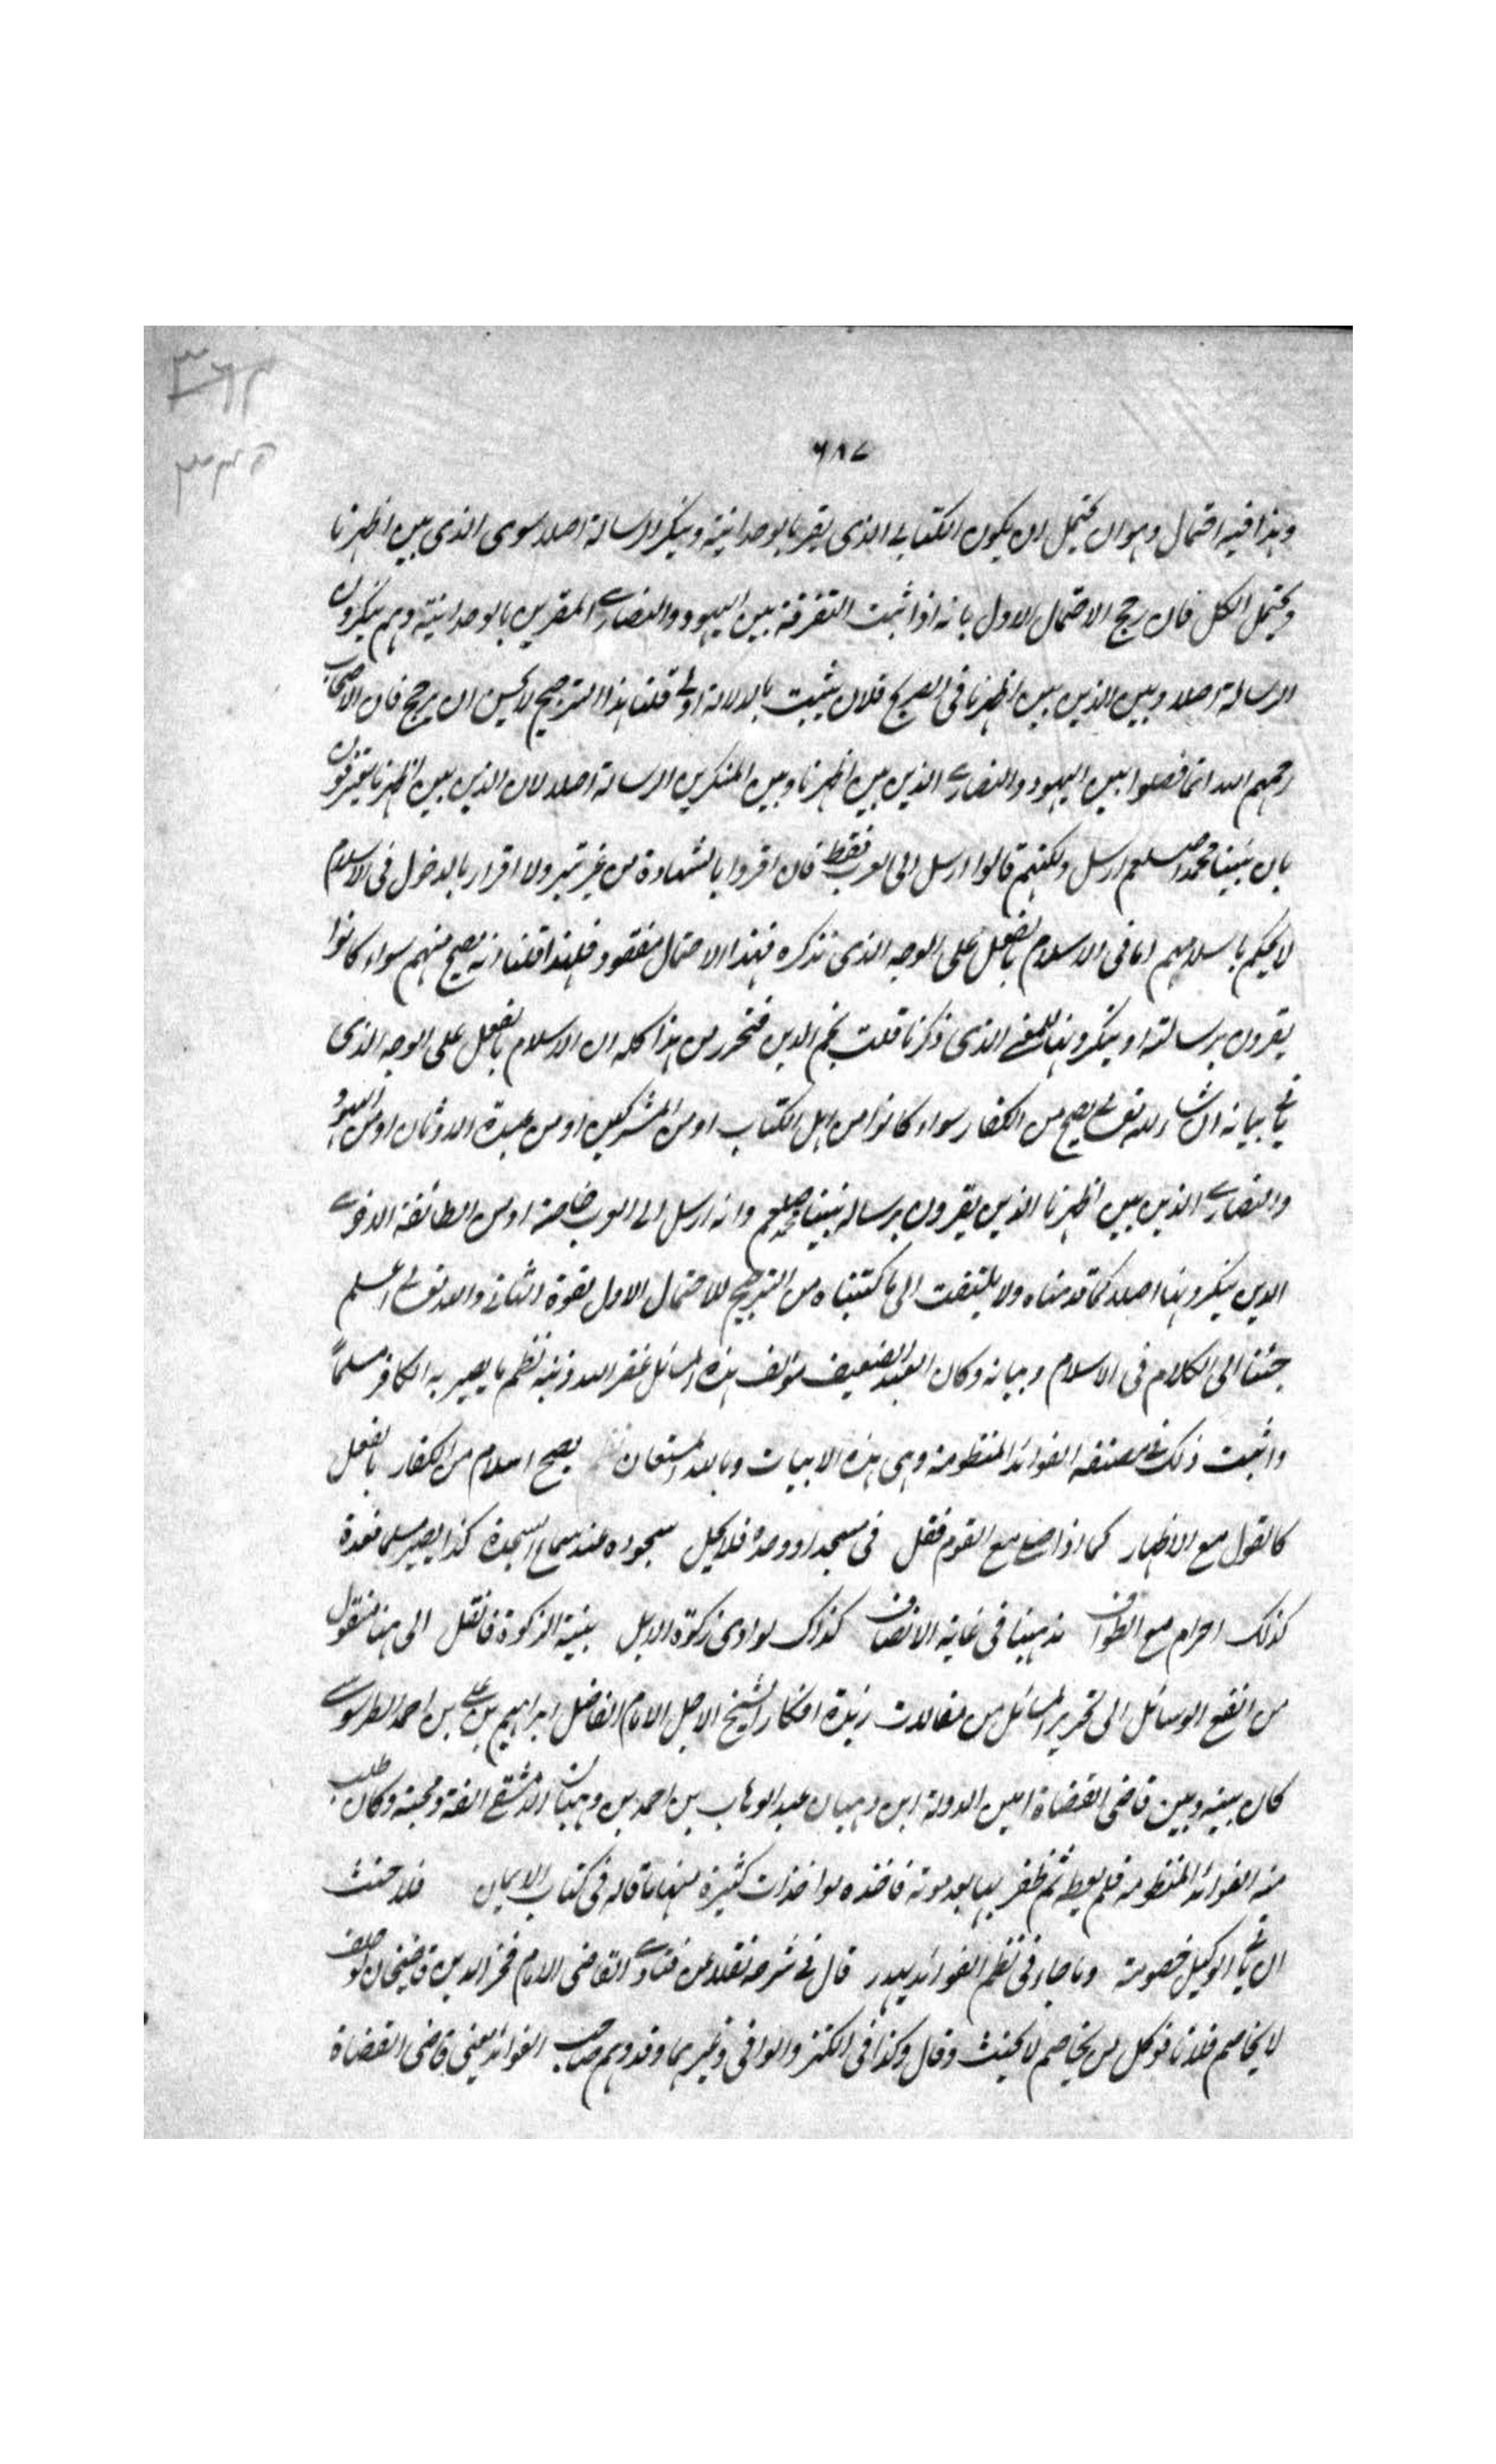 ٦٨٧
وهذا فيه احتمال وهو ان يحتمل ان يكون الكتابي الذي يقر بالوحدانية وينكر الرسالة اصلا سوى الذي بين اظهرنا
ويحتمل الكل فان رجح الاحتمال الاول بانه اذا ثبت التفرقة بين اليهود والنصارى المقرين بالوحدانية وهم ينكرون
الرسالة اصلا وبين الذين بين اظهرنا في الصريح فلان يثبت بالدلالة اولى قلنا هذا الترجيح لا يحسن ان يرجح فان الاصحاب
رحمهم الله انما فصلوا بين اليهود والنصارى الذين بين اظهرنا وبين المنكرين الرسالة اصلا لان الذين بين اظهرنا يعترفون
بان نبينا محمدا صلعم ارسل ولكنهم قالوا ارسل الى العرب فقط فان اقروا بالشهادة من غير تبر ولا اقرار بالدخول في الاسلام
لا يحكم باسلامهم اما في الاسلام بالفعل على الوجه الذي نذكره فهذا الاحتمال مفقود فلهذا قلنا انه يصح منهم سواء كانوا
يقرون برسالته او ينكرونها للمعنى الذي ذكرنا قلت نجم الدين فتحرر من هذا كله ان الاسلام بالفعل على الوجه الذي
ياتي بيانه ان شاء الله تعالى يصح من الكفار سواء كانوا من اهل الكتاب او من المشركين او من عبدة الاوثان او من اليهود
والنصارى الذين بين اظهرنا الذين يقرون برسالة نبينا محمد صلعم وانه ارسل الى العرب خاصة او من الطائفة الاخرى
الذين ينكرونها اصلا كما قدمناه ولا يلتفت الى ما كتبناه من الترجيح للاحتمال الاول لقوة الثاني والله تعالى اعلم
جئنا الى الكلام في الاسلام وبيانه وكان العبد الضعيف مؤلف هذه المسائل غفر الله ذنبه نظم ما يصير به الكافر مسلما
واثبت ذلك في مصنفه الفوائد المنظومة وهي هذه الابيات وبالله المستعان يصح اسلام من الكفار بالفعل
كالقول مع الاظهار كما اذا صلى مع القوم فقل في مسجد او وحده فلا يحل سجوده عند سماع السجدة كذا يصير مسلما فعده
كذلك احرام مع الطواف مذهبنا في غاية الانصاف كذاك لو ادى زكوة الابل بنية الزكوة فانقل الى هنا منقول
من انفع الوسائل الى تحرير المسائل من مقالات زبدة افكار الشيخ الاجل الامام الفاضل ابراهيم بن علي بن احمد الطرسوسي
كان بينه وبين قاضي القضاة امين الدولة ابن وهبان عبد الوهاب بن احمد بن وهبان الدمشقي الفة ومحبة وكان طلب
منه الفوائد المنظومة فلم يعطه ثم ظفر بها بعد موته فاخذه مواخذات كثيرة منها ما قاله في كتاب الايمان فلا حنث
ان ياتي الوكيل خصومة وما جاء في نظم الفوائد يهدر قال في شرحه نقلا عن فتاوى القاضي الامام فخر الدين قاضيخان لو حلف
لا يخاصم فلانا فوكل من يخاصم لا يحنث وقال وكذا في الكنز والوافي وغيرهما وقد وهم صاحب الفوائد يعني قاضي القضاة